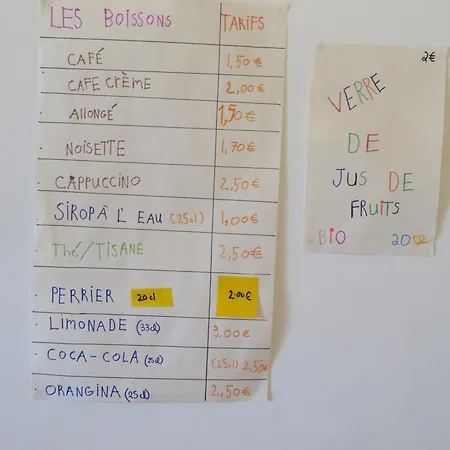 LES BOISSONS TARIFS
CAFÉ 1,50€
CAFE CRÈME 2,00€
ALLONGÉ 1,50€
NOISETTE 1,70€
CAPPUCCINO 2,50€
SIROP À L'EAU (25cl) 1,00€
Thé/TISANE 2,50€
PERRIER 20cl 2.00€
LIMONADE (33cl) 3,00€
COCA-COLA (25cl) (25cl) 2,50€
ORANGINA (25cl) 2,50€
2€
VERRE
DE
JUS DE
FRUITS
BIO 20cl